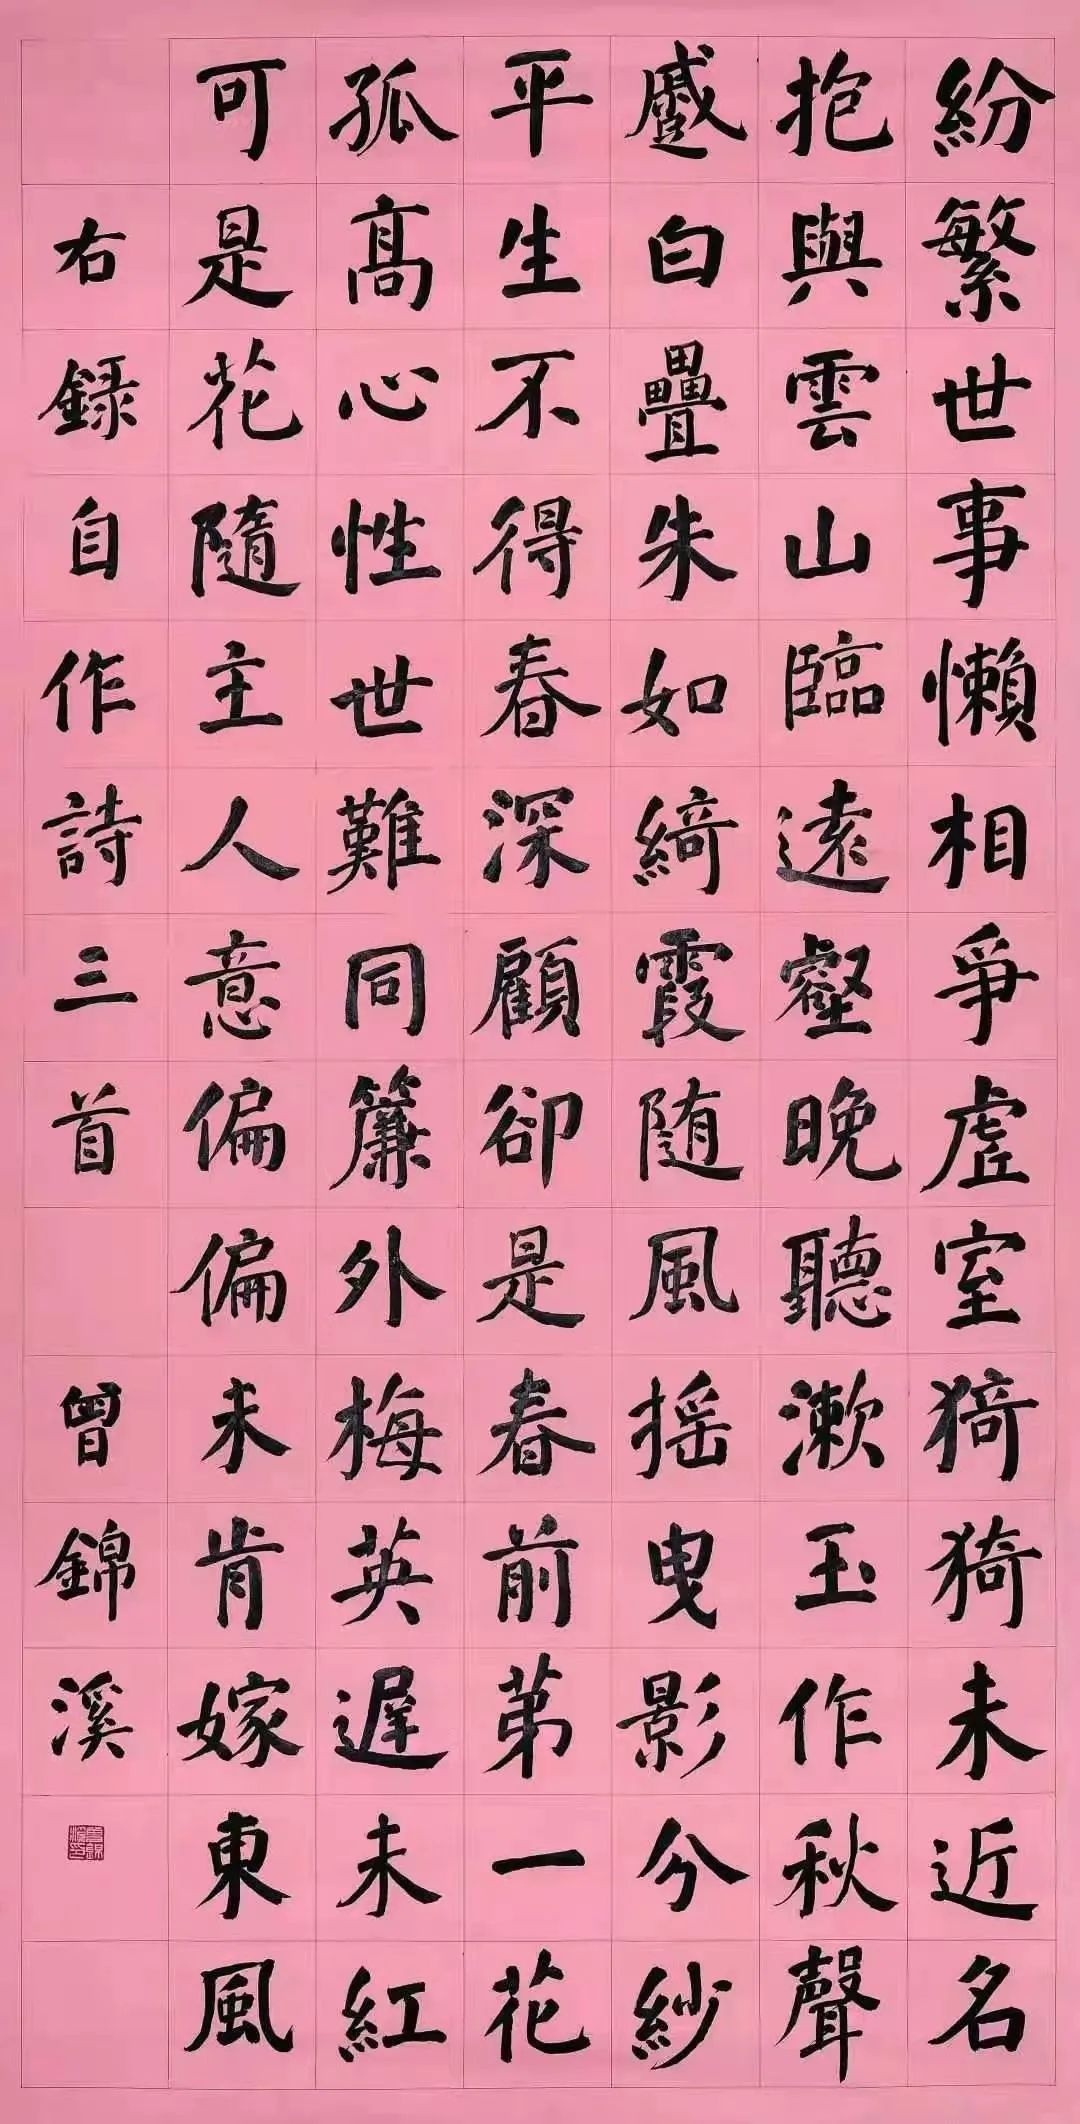 紛繁世事懶相爭虛室猗猗未近名
抱與雲山臨遠壑晚聽漱玉作秋聲
蹙白疊朱如綺霞随風摇曳影分紗
平生不得春深顧卻是春前第一花
孤髙心性世難同簾外梅英遲未紅
可是花隨主人意偏偏未肯嫁東風
右録自作詩三首 曾錦溪